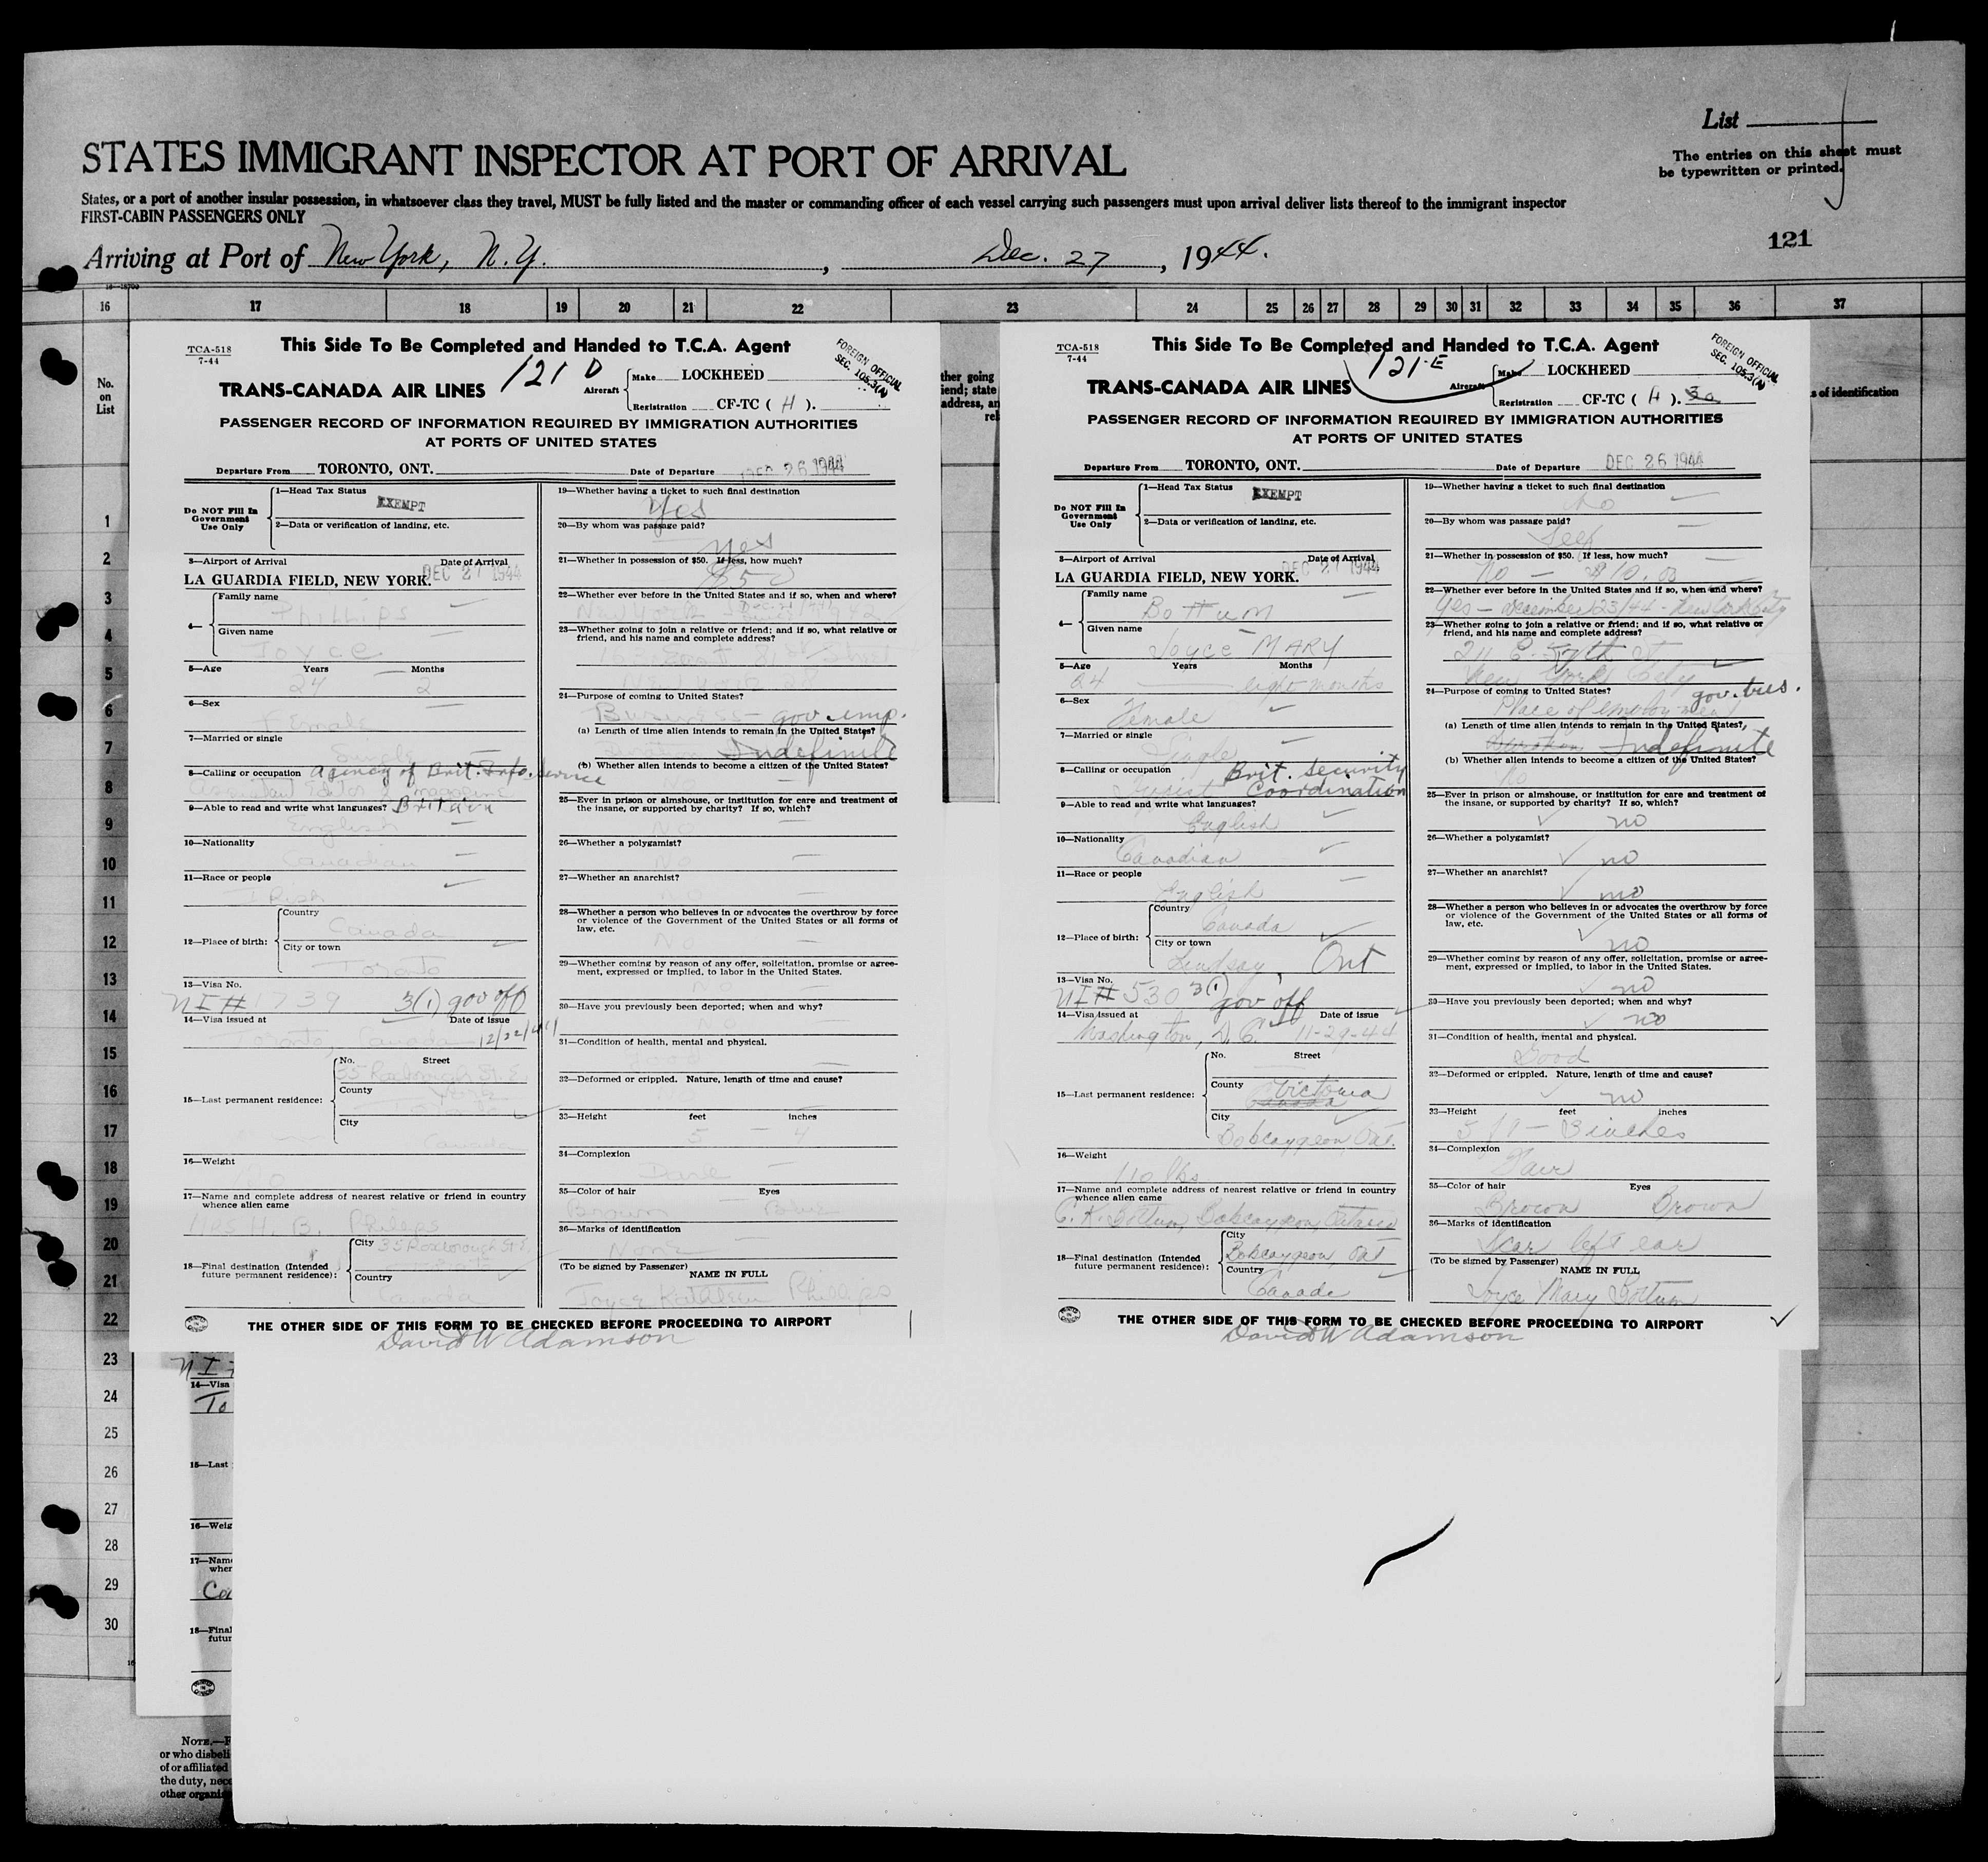 List
The entries on this sheet must
be typewritten or printed.
STATES IMMIGRANT INSPECTOR AT PORT OF ARRIVAL
States, or a port of another insular possession, in whatsoever class they travel, MUST be fully listed and the master or commanding officer of each vessel carrying such passengers must upon arrival deliver lists thereof to the immigrant inspector
FIRST-CABIN PASSENGERS ONLY
121
Arriving at Port of New York, N.Y., Dec. 27, 1944.
16 17 18 19 20 21 22 23 24 25 26 27 28 29 30 31 32 33 34 35 36 37
No.
on
List
TCA-518
7-44
This Side To Be Completed and Handed to T.C.A. Agent
FOREIGN OFFICIAL
SEC. 105.3(A)
121 D
TRANS-CANADA AIR LINES
Aircraft
Make LOCKHEED
Registration CF-TC ( H ).
PASSENGER RECORD OF INFORMATION REQUIRED BY IMMIGRATION AUTHORITIES
AT PORTS OF UNITED STATES
Departure From TORONTO, ONT. Date of Departure DEC 26 1944
Do NOT Fill In
Government
Use Only
1—Head Tax Status
EXEMPT
2—Data or verification of landing, etc.
3—Airport of Arrival Date of Arrival
LA GUARDIA FIELD, NEW YORK. DEC 27 1944
4—
Family name
Phillips
Given name
Joyce
5—Age Years Months
24 2
6—Sex
Female
7—Married or single
Single
8—Calling or occupation agency of Brit. Info. Service
9—Able to read and write what languages? Britain
English
10—Nationality
Canadian
11—Race or people
Irish
12—Place of birth:
Country
Canada
City or town
Toronto
13—Visa No.
NI # 1739 3(1) gov off
14—Visa issued at Date of issue
Toronto, Canada 12/22/44
15—Last permanent residence:
No. Street
35 Roxborough St. E.
County
York
City
Canada
16—Weight
17—Name and complete address of nearest relative or friend in country
whence alien came
Mrs H. B. Phillips
18—Final destination (Intended
future permanent residence):
City 35 Roxborough St E.
Country
Canada
19—Whether having a ticket to such final destination
Yes
20—By whom was passage paid?
Yes
21—Whether in possession of $50. If less, how much?
$50
22—Whether ever before in the United States and if so, when and where?
New York
23—Whether going to join a relative or friend; and if so, what relative or
friend, and his name and complete address?
New York
24—Purpose of coming to United States?
Business - gov. emp.
(a) Length of time alien intends to remain in the United States?
Indefinite
(b) Whether alien intends to become a citizen of the United States?
25—Ever in prison or almshouse, or institution for care and treatment of
the insane, or supported by charity? If so, which?
No
26—Whether a polygamist?
No
27—Whether an anarchist?
No
28—Whether a person who believes in or advocates the overthrow by force
or violence of the Government of the United States or all forms of
law, etc.
No
29—Whether coming by reason of any offer, solicitation, promise or agree-
ment, expressed or implied, to labor in the United States.
No
30—Have you previously been deported; when and why?
No
31—Condition of health, mental and physical.
32—Deformed or crippled. Nature, length of time and cause?
33—Height feet inches
5 — 4
34—Complexion
Dark
35—Color of hair Eyes
Brown Blue
36—Marks of identification
None
(To be signed by Passenger)
NAME IN FULL
Joyce Kathleen Phillips
THE OTHER SIDE OF THIS FORM TO BE CHECKED BEFORE PROCEEDING TO AIRPORT
David W Adamson
ther going
iend; state
address, an
rel
s of identification
TCA-518
7-44
This Side To Be Completed and Handed to T.C.A. Agent
FOREIGN OFFICIAL
SEC. 105.3(A)
121-E
TRANS-CANADA AIR LINES
Aircraft
Make LOCKHEED
Registration CF-TC ( H ).
PASSENGER RECORD OF INFORMATION REQUIRED BY IMMIGRATION AUTHORITIES
AT PORTS OF UNITED STATES
Departure From TORONTO, ONT. Date of Departure DEC 26 1944
Do NOT Fill In
Government
Use Only
1—Head Tax Status
EXEMPT
2—Data or verification of landing, etc.
3—Airport of Arrival Date of Arrival
LA GUARDIA FIELD, NEW YORK. DEC 27 1944
4—
Family name
Bottum
Given name
Joyce MARY
5—Age Years Months
24 eight months
6—Sex
Female
7—Married or single
Single
8—Calling or occupation Brit. Security
Typist Coordination
9—Able to read and write what languages?
English
10—Nationality
Canadian
11—Race or people
English
12—Place of birth:
Country
Canada
City or town
Lindsay, Ont
13—Visa No.
NI # 530 3(1) gov off
14—Visa issued at Date of issue
Washington, D.C. 11-29-44
15—Last permanent residence:
No. Street
County Victoria
Canada
City
Bobcaygeon, Ont.
16—Weight
110 lbs
17—Name and complete address of nearest relative or friend in country
whence alien came
C. K. Bottum, Bobcaygeon, Ontario
18—Final destination (Intended
future permanent residence):
City
Bobcaygeon, Ont
Country
Canada
19—Whether having a ticket to such final destination
No
20—By whom was passage paid?
Self
21—Whether in possession of $50. If less, how much?
No — $10.00
22—Whether ever before in the United States and if so, when and where?
Yes - December 23/44 - New York City
23—Whether going to join a relative or friend; and if so, what relative or
friend, and his name and complete address?
211 E. 57th St
New York City
24—Purpose of coming to United States? gov. bus.
Place of employment
(a) Length of time alien intends to remain in the United States?
Duration Indefinite
(b) Whether alien intends to become a citizen of the United States?
No
25—Ever in prison or almshouse, or institution for care and treatment of
the insane, or supported by charity? If so, which?
no
26—Whether a polygamist?
no
27—Whether an anarchist?
no
28—Whether a person who believes in or advocates the overthrow by force
or violence of the Government of the United States or all forms of
law, etc.
no
29—Whether coming by reason of any offer, solicitation, promise or agree-
ment, expressed or implied, to labor in the United States.
no
30—Have you previously been deported; when and why?
no
31—Condition of health, mental and physical.
Good
32—Deformed or crippled. Nature, length of time and cause?
no
33—Height feet inches
5 ft — 3 inches
34—Complexion
Fair
35—Color of hair Eyes
Brown Brown
36—Marks of identification
Scar left ear
(To be signed by Passenger)
NAME IN FULL
Joyce Mary Bottum
THE OTHER SIDE OF THIS FORM TO BE CHECKED BEFORE PROCEEDING TO AIRPORT
David W Adamson
1
2
3
4
5
6
7
8
9
10
11
12
13
14
15
16
17
18
19
20
21
22
23
24
25
26
27
28
29
30
NI
14—Visa
To
15—Last
16—Weig
17—Nam
wher
18—Final
futur
NOTE.—F
or who disbeli
of or affiliated
the duty, nece
other organi